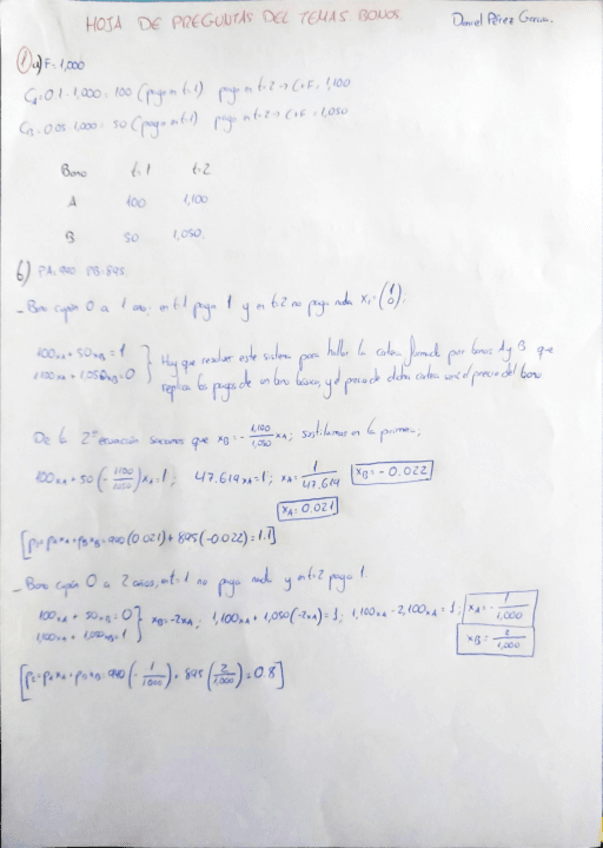 HOJA DE PREGUNTAS DEL TEMAS BONOS.
Daniel Pérez
① a) F = 1,000
C_A = 0.1 · 1,000 = 100 (pago en t=1) pago en t=2 → C+F = 1,100
C_B = 0.05 · 1,000 = 50 (pago en t=1) pago en t=2 → C+F = 1,050
Bono t=1 t=2
A 100 1,100
B 50 1,050.
b) PA = 940 PB = 895.
- Bono cupón 0 a 1 ano: en t=1 paga 1 y en t=2 no paga nada x₁ = (1 0).
100xA + 50xB = 1
1,100xA + 1,050xB = 0
} Hay que resolver este sistema para hallar la cartera formada por bonos A y B que
replica los pagos de un bono básico, y el precio de dicha cartera será el precio del bono
De la 2ª ecuación sacamos que xB = - 1,100/1,050 xA; sustituimos en la primera;
100xA + 50(- 1100/1050)xA = 1; 47.619xA = 1; xA = 1/47.619 xB = -0.022
xA = 0.021
[p₁ = pAxA + pBxB = 940(0.021) + 895(-0.022) = 1.1]
- Bono cupón 0 a 2 años, en t=1 no paga nada y en t=2 paga 1.
100xA + 50xB = 0
1,100xA + 1,050xB = 1
} xB = -2xA; 1,100xA + 1,050(-2xA) = 1; 1,100xA - 2,100xA = 1; xA = - 1/1,000
xB = 2/1,000
[p₂ = pAxA + pBxB = 940(- 1/1000) + 895(2/1,000) = 0.8]